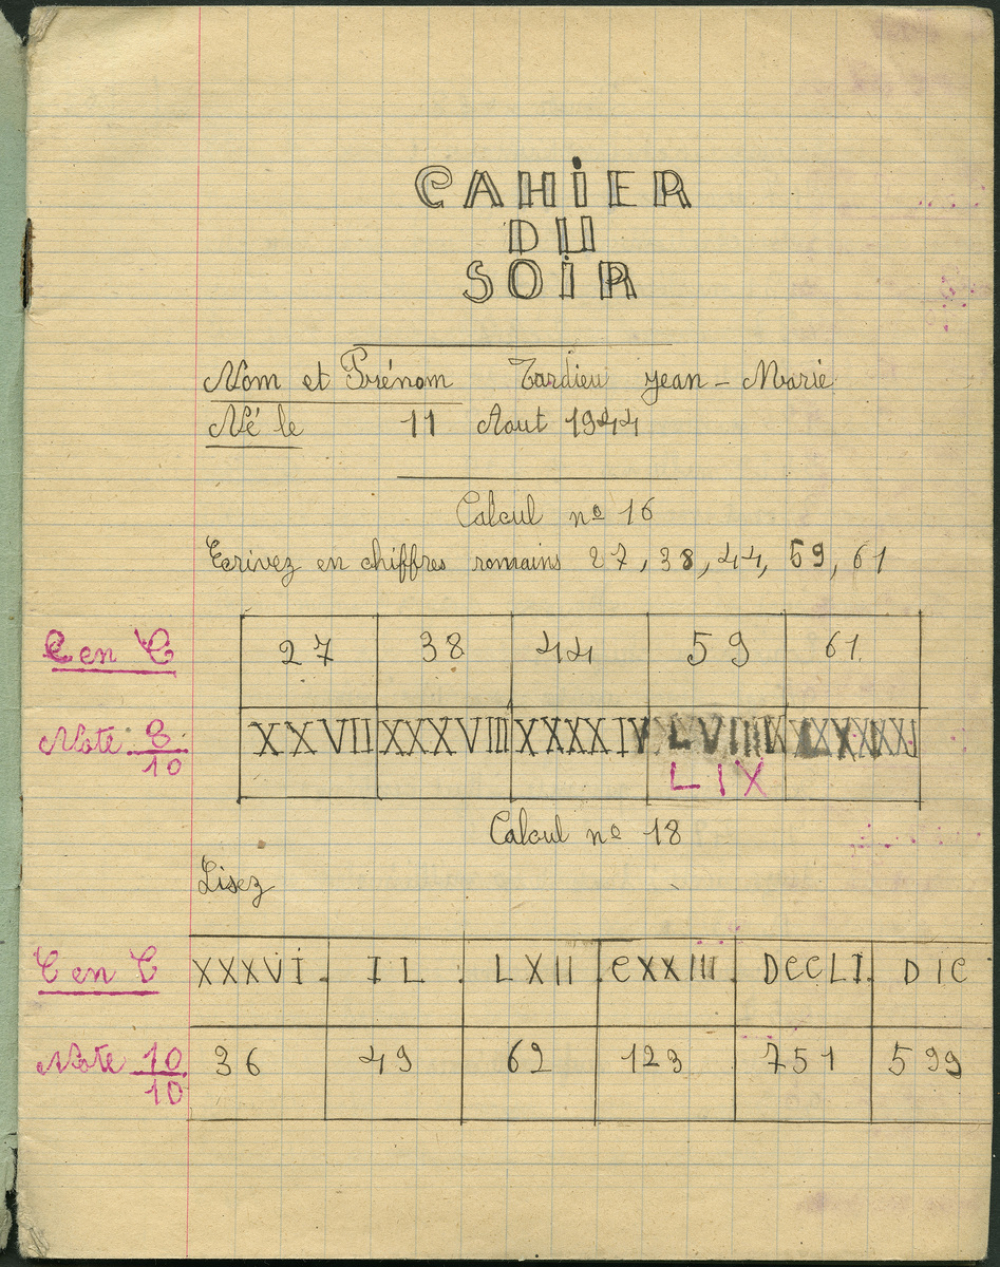 CAHIER
DU
SOIR
Nom et Prénom Tardieu Jean-Marie
Né le 11 Aout 1944
Calcul nº 16
Ecrivez en chiffres romains 27, 38, 44, 59, 61
C en C 27 38 44 59 61
Note 8/10 XXVII XXXVIII XXXXIV
LIX
Calcul nº 18
Lisez
C en C XXXVI. IL. LXII. CXXIII. DCCLI. DIC
Note 10/10 36 49 62 123 751 599